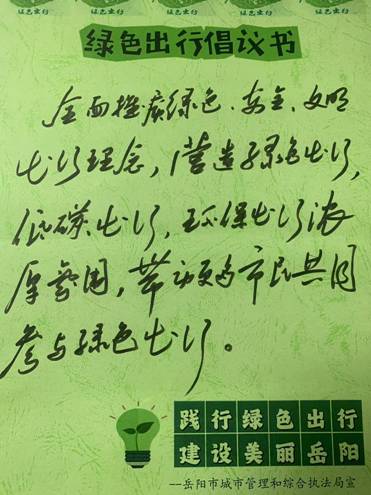 绿色出行 绿色出行 绿色出行 绿色出行 绿色出行
绿色出行倡议书
全面推广绿色、安全、文明
出行理念，营造绿色出行，
低碳出行，环保出行浓
厚氛围，带动更多市民共同
参与绿色出行。
践行绿色出行
建设美丽岳阳
---岳阳市城市管理和综合执法局宣